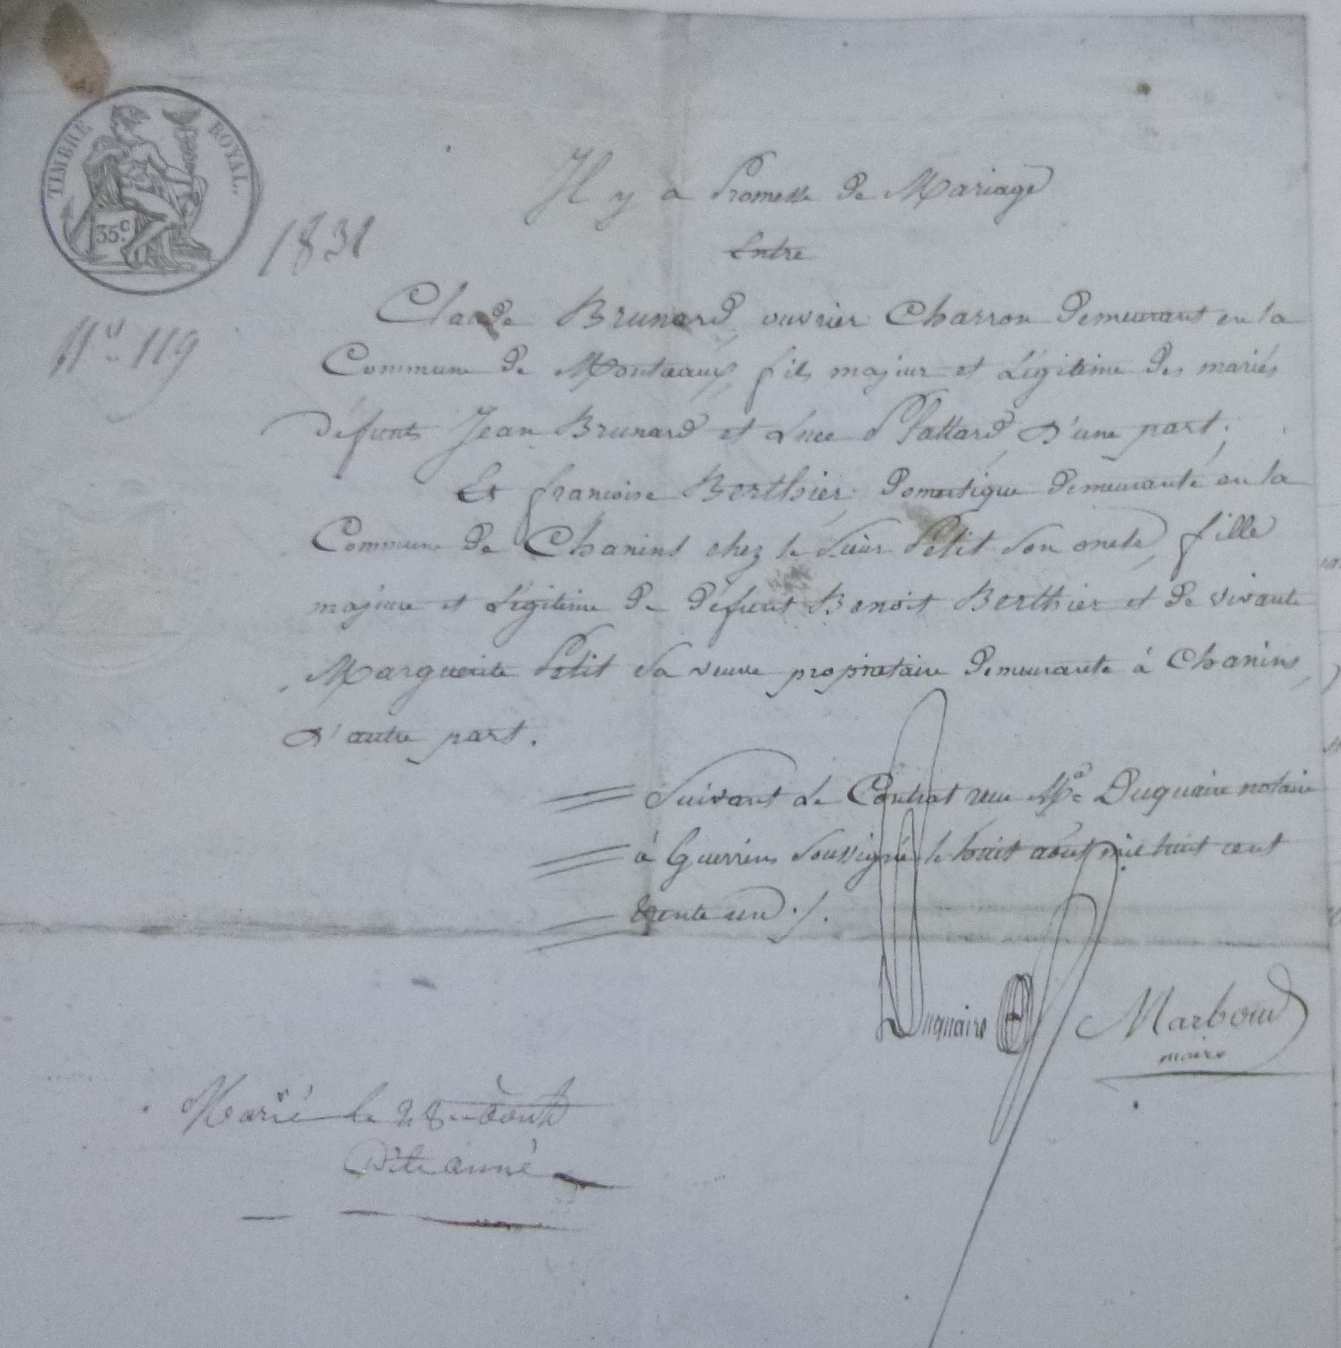 TIMBRE ROYAL.
35 c.
1831
N° 119
Il y a Promesse de Mariage
Entre
Claude Brunard, ouvrier Charron demeurant en la
Commune de Montceaux, fils majeur et Légitime des mariés
défunts Jean Brunard et Luce Plattard, d'une part;
Et françoise Berthier, Domestique demeurante en la
Commune de Chanins chez le Sieur Petit Son oncle, fille
majeure et Légitime de défunt Benoit Berthier et de vivante
Marguerite Petit Sa veuve propriétaire demeurante à Chanins,
d'autre part.
Suivant Le Contrat reçu Me Duquaire notaire
à Guerrins Soussigné le huit août mil huit cent
trente un ./.
Duquaire
Marboud
maire
Marié le 28 août
Dite année